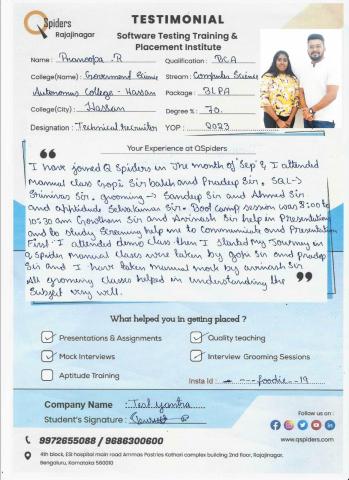 QSpiders
Rajajinagar
TESTIMONIAL
Software Testing Training &
Placement Institute
Name : Pranoopa .R
Qualification : BCA
College(Name) : Government Science
Stream : Computer Science
Autonomous College - Hassan
Package : 3LPA
College(City) : Hassan
Degree % : 70.
Designation : Technical recruiter
YOP : 2023
Your Experience at QSpiders
I have joined Q Spiders in The month of 'Sep' & I attended
manual class Gopi Sir batch and Pradeep Sir. SQL->
Srinivas Sir. grooming -> Sandeep Sir and Ahmed Sir
and apptitude Selvakumar Sir. Boot camp session was 8:00 to
10:30 am Gowtham Sir and Avinash Sir help in Presentation
and to study Screening help me to communicate and Presentation
First I attended demo class then I started my Journey in
Q spider manual classes were taken by Gopi Sir and Pradeep
Sir and I have taken manual mock by avinash Sir
All groomng classes helped in understanding the
Subject very well.
What helped you in getting placed ?
Presentations & Assignments
Quality teaching
Mock Interviews
Interview Grooming Sessions
Aptitude Training
Insta Id : - ---foodie--19
Company Name : Test yantra
Student's Signature :
Follow us on :
9972655088 / 9686300600
www.qspiders.com
4th block, ESI hospital main road Ammas Pastries Kathari complex building 2nd floor, Rajajinagar,
Bengaluru, Karnataka 560010